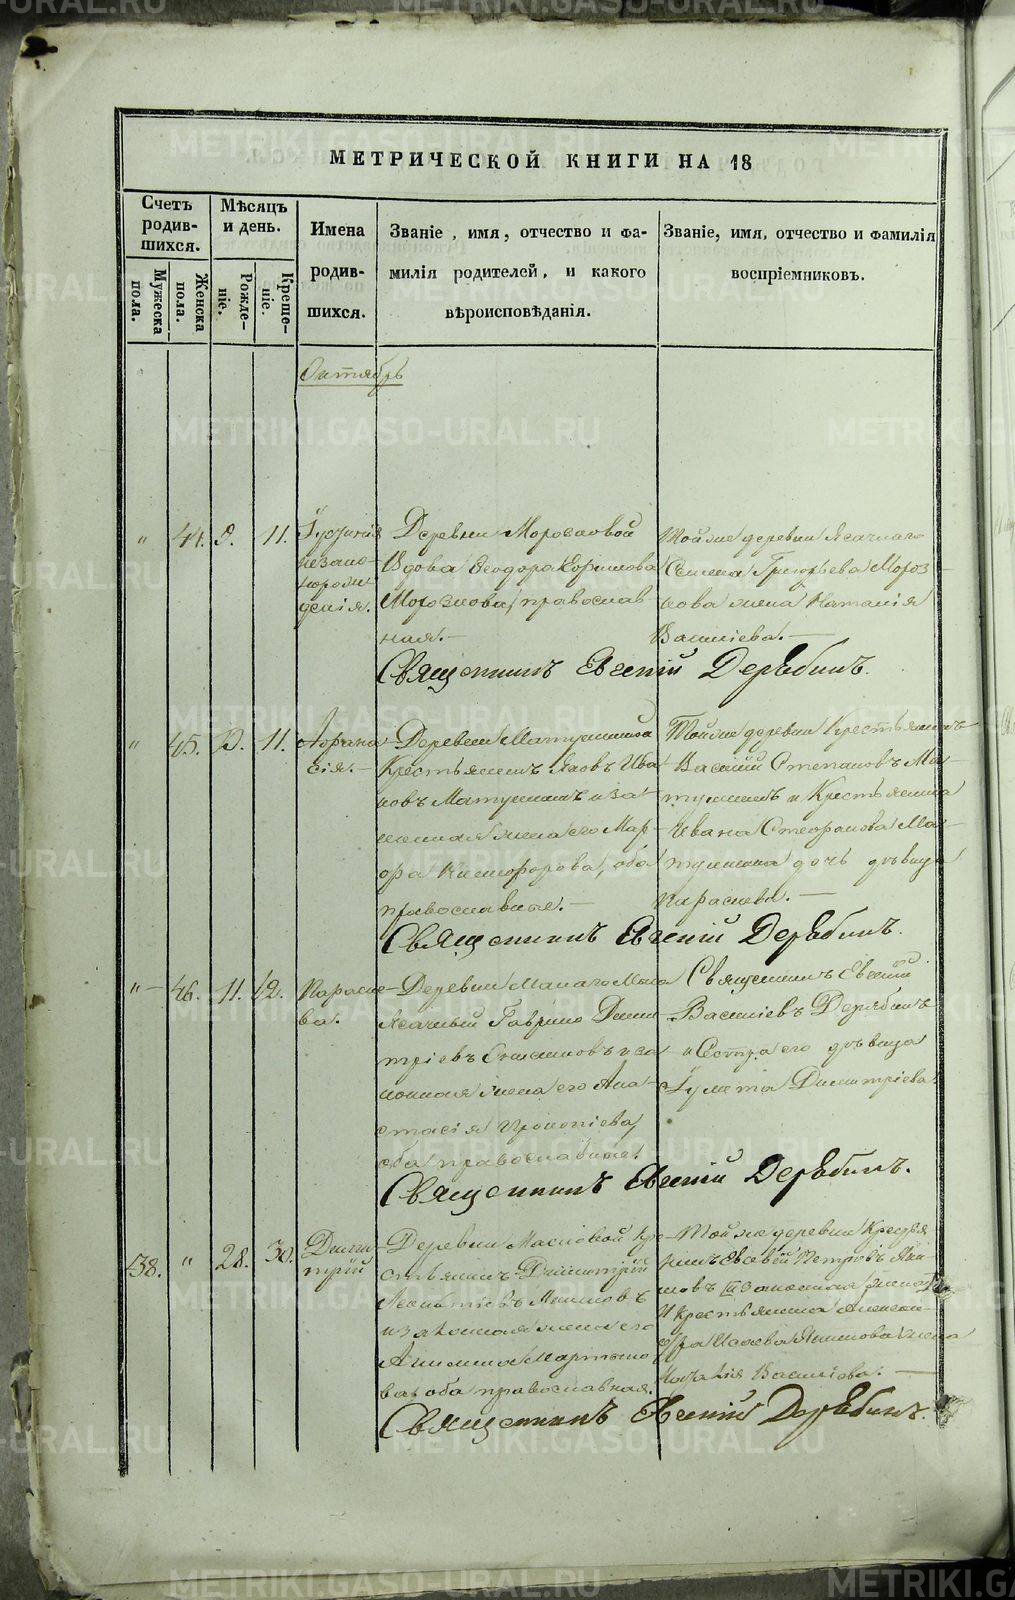 МЕТРИЧЕСКОЙ КНИГИ НА 18
Счетъ родив-шихся.
Мужеска пола.
Женска пола.
Мѣсяцъ и день.
Рожде-ніе.
Креще-ніе.
Имена родив-шихся.
Званіе, имя, отчество и фа-
милія родителей, и какого
вѣроисповѣданія.
Званіе, имя, отчество и фамилія
воспріемниковъ.
Октябрь
" 44. 8. 11.
незако-
норож
денія.
Деревни Морозковой
Вдова Ѳеодора
православ
ная.
Тойже деревни Ясачнаго
Семена Григорьева Мороз
кова жена Наталія
Василіева.
Священникъ Евгеній Дерябинъ.
" 45. 11.
Аѳана
сія.
Деревни Матушкиной
Крестьянинъ Яковъ Ива
новъ Матушкинъ и за
конная жена его Мар
ѳа Никифорова, оба
православные.
Тойже деревни Крестьянинъ
Василій Степановъ Ма
тушкинъ и Крестьянина
Ивана Стефанова Ма
тушкина дочь дѣвица
Параскева.
Священникъ Евгеній Дерябинъ.
" 46. 11. 12.
Параске
ва.
Деревни
Ясачный Гаврило Дими
тріевъ и за
конная жена его Ана
стасія Прокопіева
оба православные.
Священникъ Евгеній
Василіевъ Дерябинъ
и Сестра его дѣвица
Димитріева.
Священникъ Евгеній Дерябинъ.
38. " 28. 30.
Дими
трій
Деревни Масловой Кре
стьянинъ Димитрій
Леонтіевъ
и законная жена его
Акилина Мартыно
ва, оба православная.
Тойже деревни Крестья
нинъ Евсевій Петровъ Яки
мовъ
и крестьянина Алексан
дра Исаева Якимова жена
Наталія Василіева.
Священникъ Евгеній Дерябинъ.
METRIKI.GASO-URAL.RU